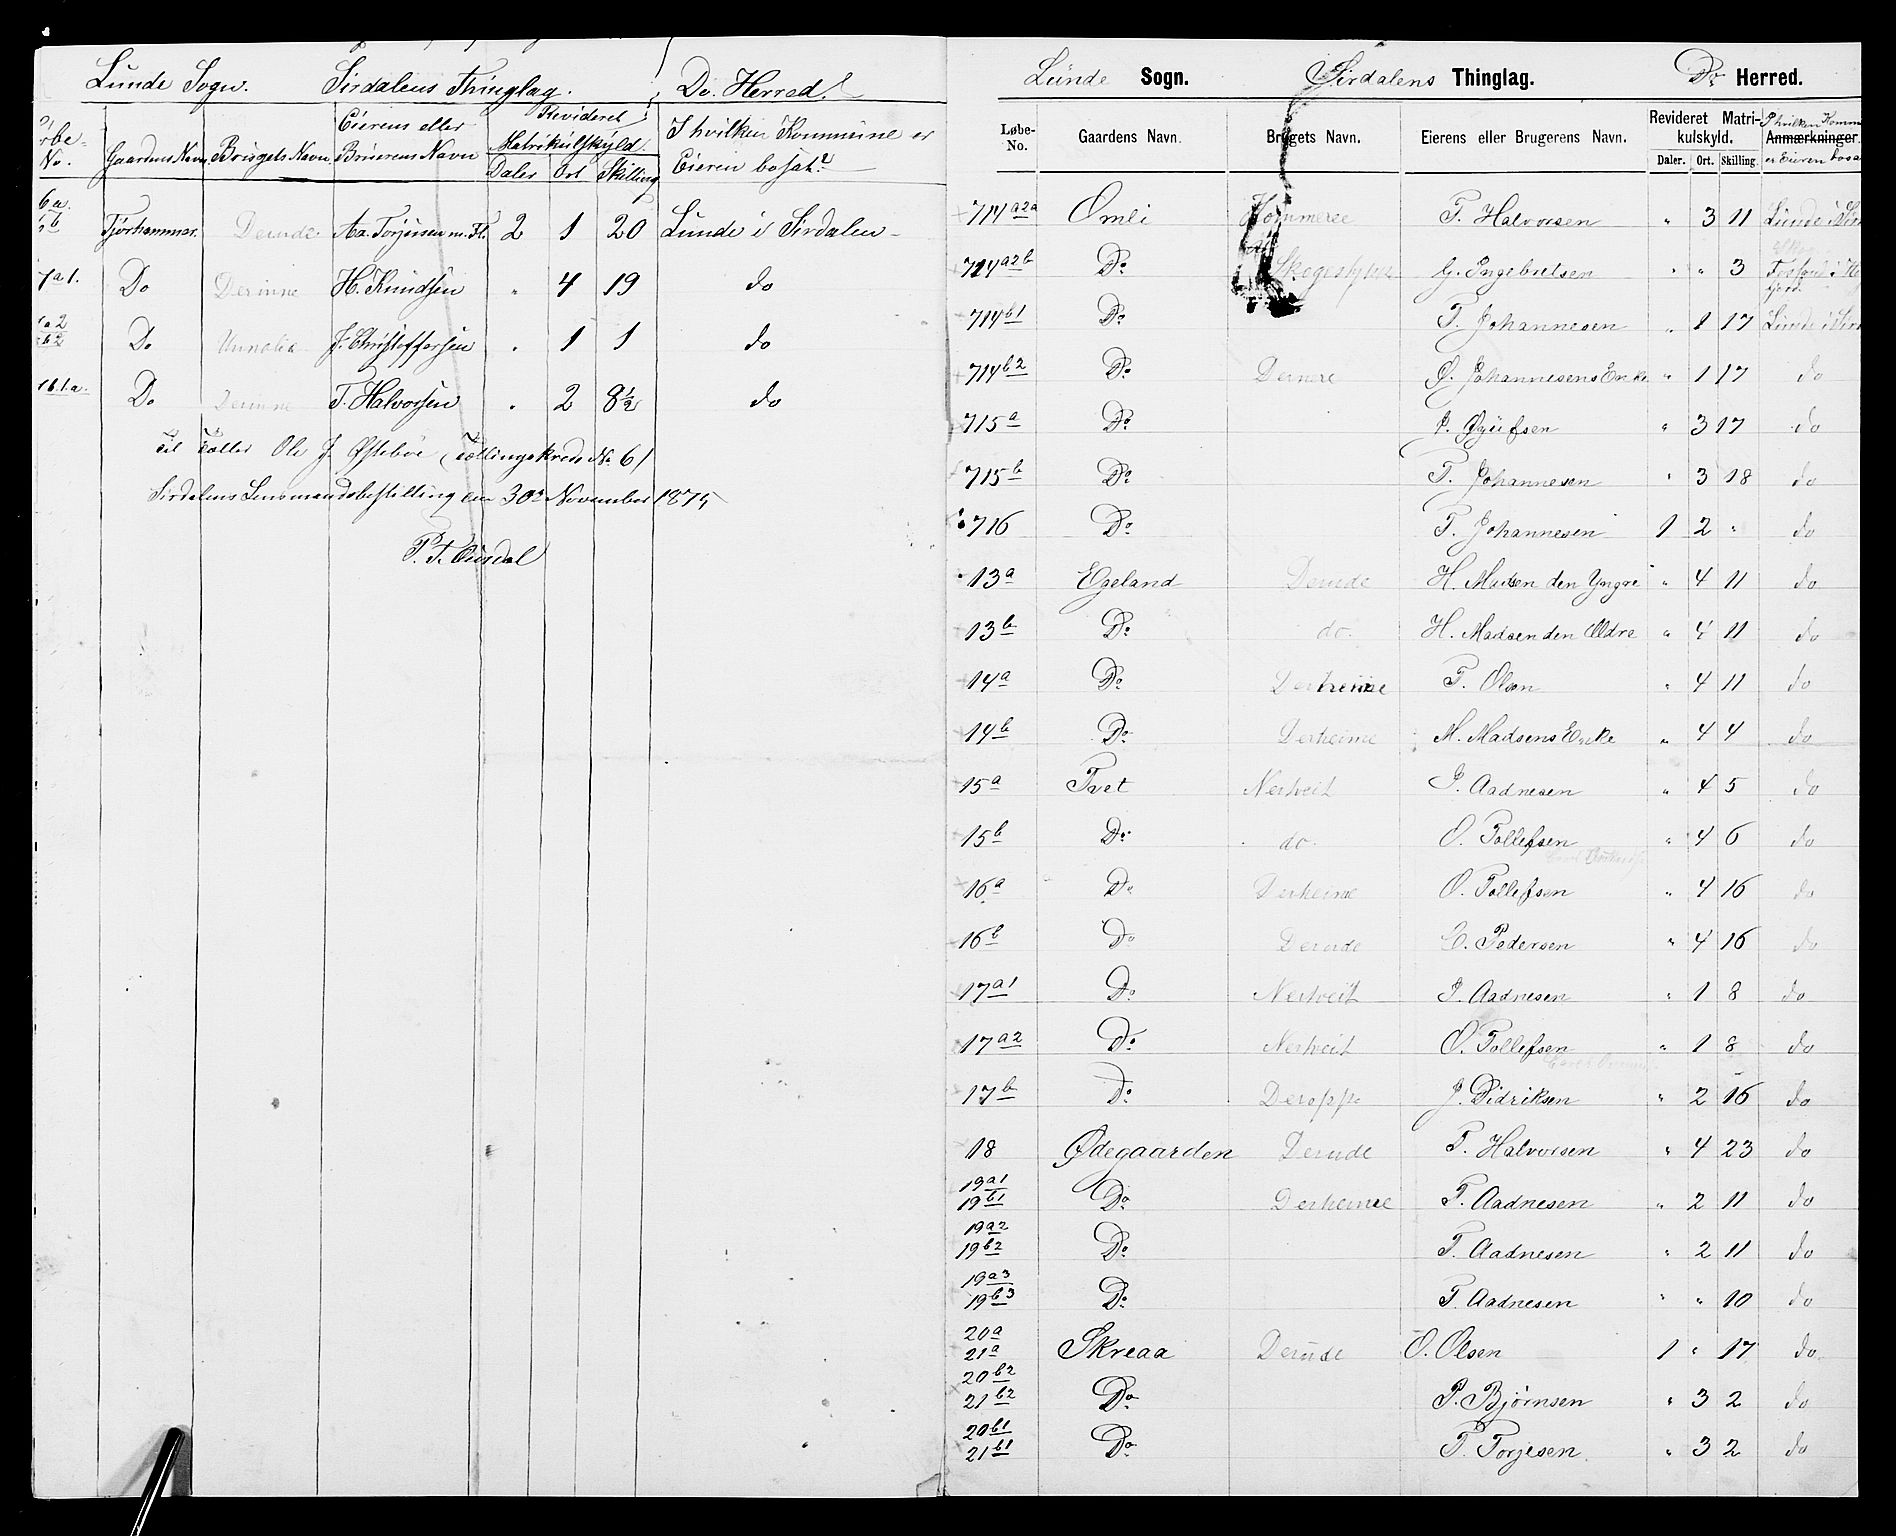 Lunde Sogn. Sirdalens Thinglag. Do. Herred.
No. Gaardens Navn Brugets Navn Eierens eller Brugerens Navn Revideret Matrikulskyld. Daler Ort Skilling I hvilken Kommune er Eieren bosat?
6a.
b Tjørhammer. Derude. Aa. Torjussen m. Fl. 2 1 20 Lunde i Sirdalen
7a1. Do Derinne H. Knudsen " 4 19 do
a2
b2 Do Unnalia J. Christoffersen " 1 1 do
b.1.a. Do Derinne T. Halvorsen " 2 8½ do
Til Tæller Ole J. Østebøe (Tællingskreds No 6)
Sirdalens Lensmandsbestilling den 30te November 1875
P. T. Ousdal
Lunde Sogn. Sirdalens Thinglag. Do Herred.
Løbe-No. Gaardens Navn. Brugets Navn. Eierens eller Brugerens Navn. Revideret Matrikulskyld. Daler. Ort. Skilling. Anmærkninger. I hvilken Komm er Eieren bosa
714a2a Omli T. Halvorsen " 3 11 Lunde i Sir
714a2b Do G. Ingebretsen " " 3
714b1 Do T. Johannesen " 1 17 Lunde i Sir
714b2 Do Dernere O. Johannesens Enke " 1 17 do
715a Do " 3 17 do
715b Do T. Johannesen " 3 18 do
716 Do T. Johannesen 1 2 " do
13a Egeland Derude H. Madsen den Yngre " 4 11 do
13b Do do. H. Madsen den Ældre " 4 11 do
14a Do Derheime T. Olsen " 4 11 do
14b Do Derheime M. Madsens Enke " 4 4 do
15a Tvet Nertveit P. Aadnesen " 4 5 do
15b Do do. O. Tollefsen " 4 6 do
16a Do Derheime O. Tollefsen " 4 16 do
16b Do Derude C. Pedersen " 4 16 do
17a1 Do Nertveit P. Aadnesen " 1 8 do
17a2 Do Nertveit O. Tollefsen " 1 8 do
17b Do Deroppe J. Didriksen " 2 16 do
18 Ødegaarden Derude T. Halvorsen " 4 23 do
19a1
19b1 Do Derheime T. Aadnesen " 2 11 do
19a2
19b2 Do T. Aadnesen " 2 11 do
19a3
19b3 Do T. Aadnesen " " 10 do
20a
21a Skreaa Derude O. Olsen 1 " 17 do
20b2
21b2 Do P. Bjørnsen " 3 2 do
20b1
21b1 Do T. Torjesen " 3 2 do